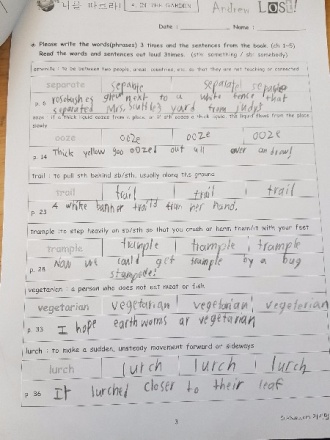 GARDEN Andrew LOST!
Date : Name :
※ Please write the words(phrases) 3 times and the sentences from the book. (ch 1-5)
Read the words and sentences out loud 3 times. (sth: something / sb: somebody)
separate : to be between two people, areas, countries, etc. so that they are not touching or connected
separate separate separate separate
p. 6 rosebushes grew next to a white fence that
separated Mrs. yard from Judy's
ooze : if a thick liquid oozes from a place, or if sth oozes a thick liquid, the liquid flows from the place
slowly
ooze ooze ooze ooze
p. 14 Thick yellow goo oozed out all over Andrew!
trail : to pull sth behind sb/sth, usually along the ground
trail trail trail trail
p. 23 A white banner from her hand.
trample : to step heavily on sb/sth so that you crush or harm them/it with your feet
trample trample trample trample
p. 28 Now we could get trample by a bug
stampede!
vegetarian : a person who does not eat meat or fish
vegetarian vegetarian vegetarian vegetarian
p. 33 I hope earth worms ar vegetarian
lurch : to make a sudden, unsteady movement forward or sideways
lurch lurch lurch lurch
p. 36 It lurched closer to their leaf
3